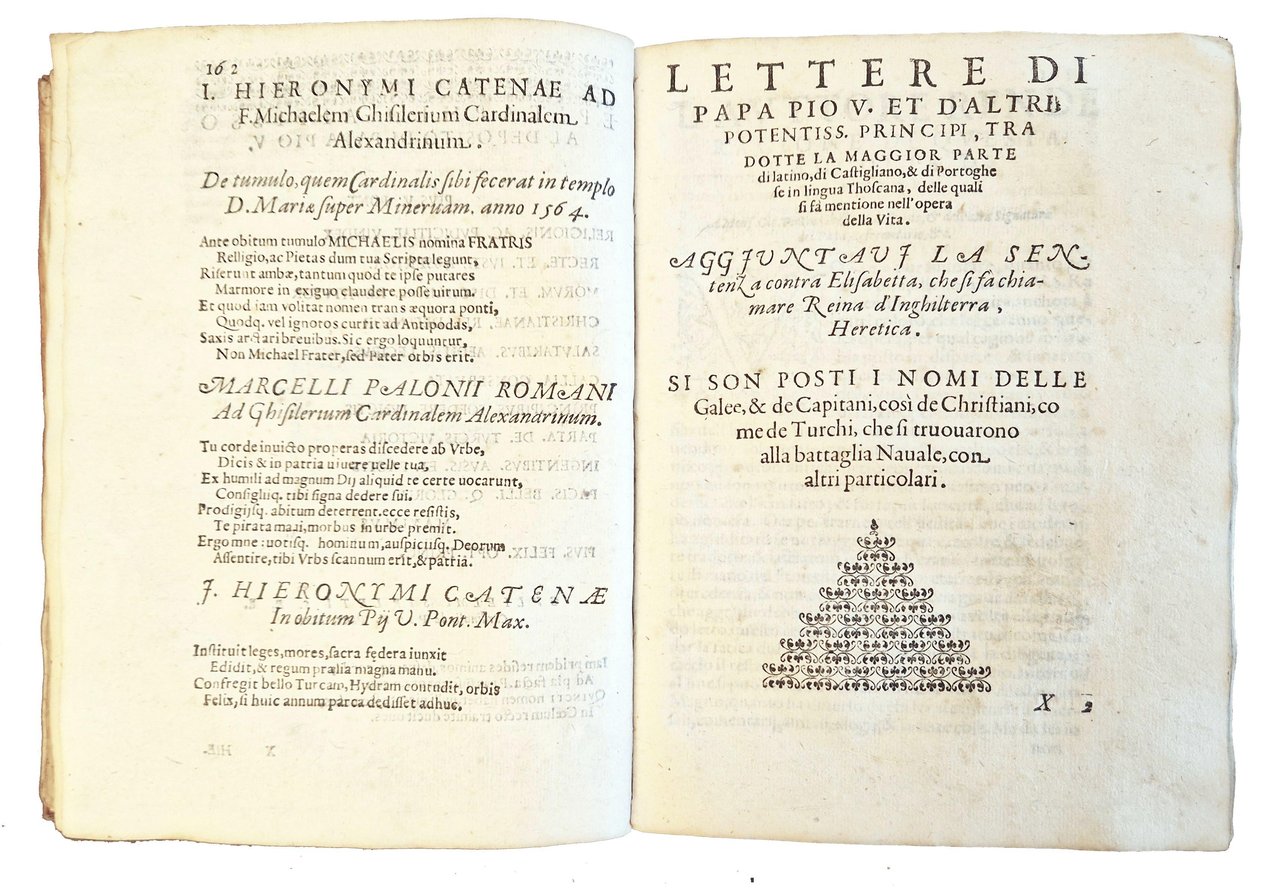 162
I. HIERONYMI CATENAE AD
F. Michaelem Ghisilerium Cardinalem
Alexandrinum.
De tumulo, quem Cardinalis sibi fecerat in templo
D. Mariæ super Mineruam. anno 1564.
Ante obitum tumulo MICHAELIS nomina FRATRIS
Relligio, ac Pietas dum tua Scripta legunt,
Riserunt ambæ, tantum quod te ipse putares
Marmore in exiguo claudere posse uirum.
Et quod iam volitat nomen trans æquora ponti,
Quodq. vel ignotos currit ad Antipodas,
Saxis arctari breuibus. Sic ergo loquuntur,
Non Michael Frater, sed Pater orbis erit.
MARCELLI PALONII ROMANI
Ad Ghisilerium Cardinalem Alexandrinum.
Tu corde inuicto properas discedere ab Vrbe,
Dicis & in patria uiuere uelle tua,
Ex humili ad magnum Dij aliquid te certe uocarunt,
Consiliiq. tibi signa dedere sui.
Prodigijsq. abitum deterrent. ecce resistis,
Te pirata mari, morbus in urbe premit.
Ergo ne: uotisq. hominum, auspicijsq. Deorum
Assentire, tibi Vrbs scannum erit, & patria.
I. HIERONYMI CATENÆ
In obitum Pij V. Pont. Max.
Instituit leges, mores, sacra fędera iunxit
Edidit, & regum prælia magna manu.
Confregit bello Turcam, Hydram contudit, orbis
Felix, si huic annum parca dedisset adhuc.
LETTERE DI
PAPA PIO V. ET D'ALTRI
POTENTISS. PRINCIPI, TRA
DOTTE LA MAGGIOR PARTE
di latino, di Castigliano, & di Portoghe
se in lingua Thoscana, delle quali
si fà mentione nell'opera
della Vita.
AGGIUNTAUI LA SEN-
tenza contra Elisabetta, che si fa chia-
mare Reina d'Inghilterra,
Heretica.
SI SON POSTI I NOMI DELLE
Galee, & de Capitani, così de Christiani, co
me de Turchi, che si truouarono
alla battaglia Nauale, con
altri particolari.
X 2